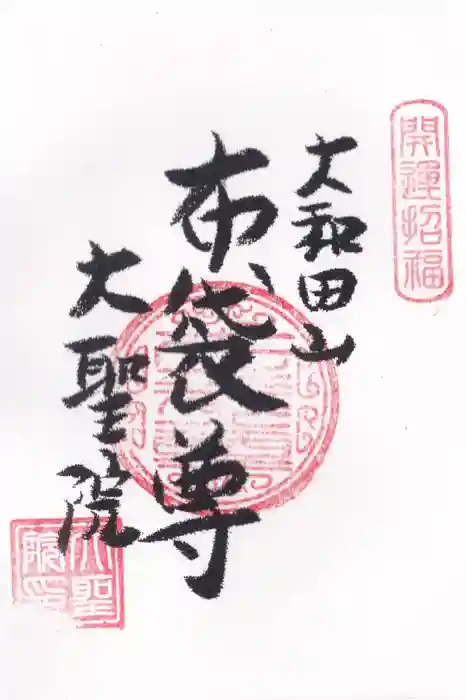 開運招福
大和田山
布袋尊
大聖院
大聖
院印